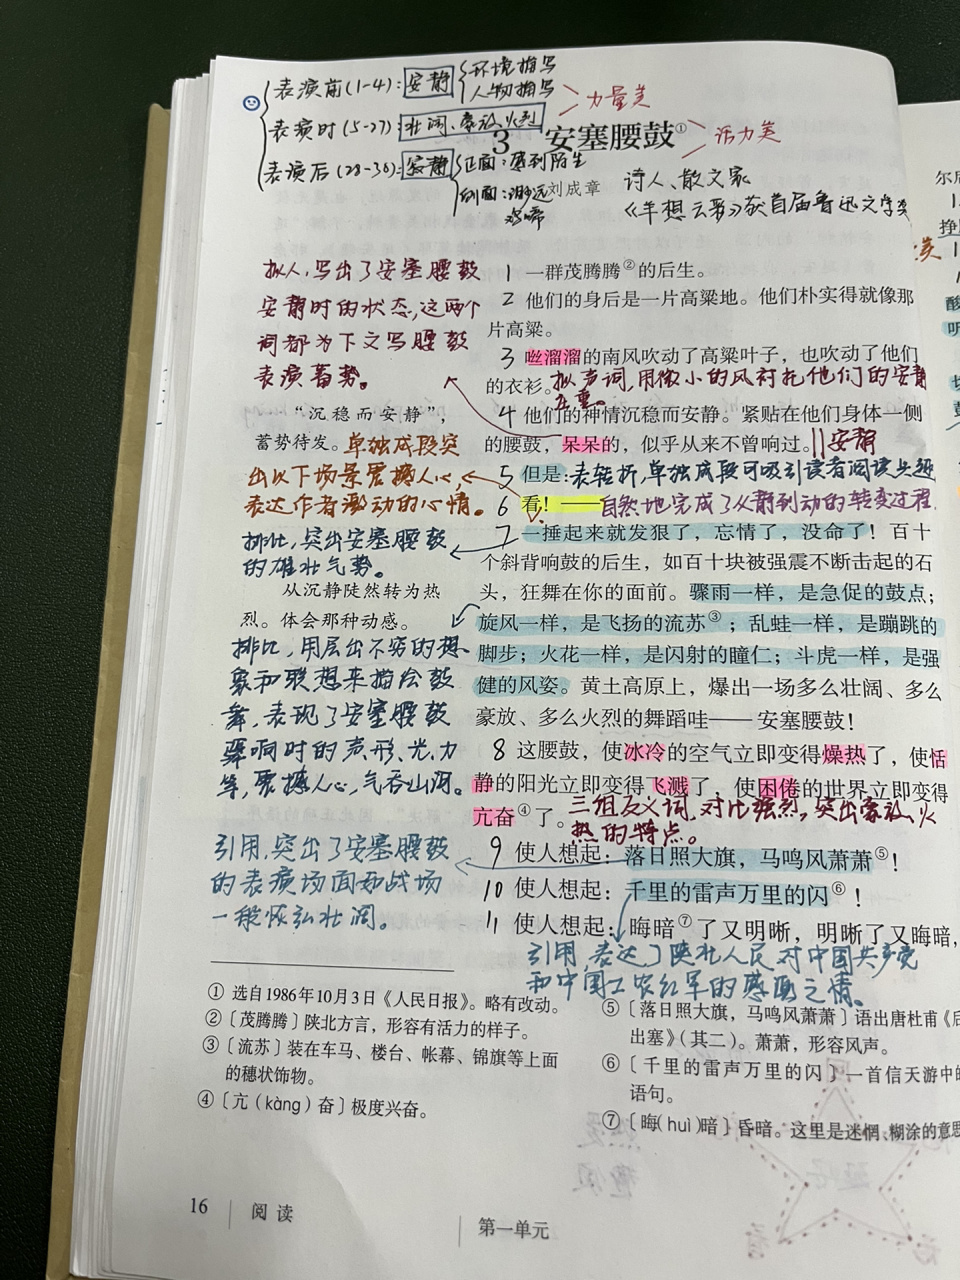 表演前(1-4):安静 环境描写
人物描写 力量美
表演时(5-27):壮阔、豪放、火烈
3 安塞腰鼓① 活力美
表演后(28-30):安静 正面:感到陌生
侧面:渺远
鸡啼
刘成章
诗人、散文家
《羊想云彩》获首届鲁迅文学奖
拟人,写出了安塞腰鼓
安静时的状态,这两个
词都为下文写腰鼓
表演蓄势。
“沉稳而安静”,
蓄势待发。单独成段突
出以下场景震撼人心,
表达作者激动的心情。
排比,突出安塞腰鼓
的雄壮气势。
从沉静陡然转为热
烈。体会那种动感。
排比,用层出不穷的想
象和联想来描绘鼓
舞,表现了安塞腰鼓
骤响时的声、形、光、力
等,震撼人心,气吞山河。
引用,突出了安塞腰鼓
的表演场面如战场
一般恢弘壮阔。
1 一群茂腾腾②的后生。
2 他们的身后是一片高粱地。他们朴实得就像那
片高粱。
3 咝溜溜的南风吹动了高粱叶子,也吹动了他们
的衣衫。拟声词,用微小的风衬托他们的安静
4 他们的神情沉稳而安静。紧贴在他们身体一侧
的腰鼓,呆呆的,似乎从来不曾响过。||安静
5 但是:表转折,单独成段可吸引读者阅读兴趣
6 看!——自然地完成了从静到动的转变过程
7 一捶起来就发狠了,忘情了,没命了!百十
个斜背响鼓的后生,如百十块被强震不断击起的石
头,狂舞在你的面前。骤雨一样,是急促的鼓点;
旋风一样,是飞扬的流苏③;乱蛙一样,是蹦跳的
脚步;火花一样,是闪射的瞳仁;斗虎一样,是强
健的风姿。黄土高原上,爆出一场多么壮阔、多么
豪放、多么火烈的舞蹈哇——安塞腰鼓!
8 这腰鼓,使冰冷的空气立即变得燥热了,使恬
静的阳光立即变得飞溅了,使困倦的世界立即变得
亢奋④了。三组反义词,对比强烈,突出豪放、火
热的特点。
9 使人想起:落日照大旗,马鸣风萧萧⑤!
10 使人想起:千里的雷声万里的闪⑥!
11 使人想起:晦暗⑦了又明晰,明晰了又晦暗,
引用,表达了陕北人民对中国共产党
和中国工农红军的感恩之情。
① 选自1986年10月3日《人民日报》。略有改动。
②〔茂腾腾〕陕北方言,形容有活力的样子。
③〔流苏〕装在车马、楼台、帐幕、锦旗等上面
的穗状饰物。
④〔亢(kàng)奋〕极度兴奋。
⑤〔落日照大旗,马鸣风萧萧〕语出唐杜甫《后
出塞》(其二)。萧萧,形容风声。
⑥〔千里的雷声万里的闪〕一首信天游中的
语句。
⑦〔晦(huì)暗〕昏暗。这里是迷惘、糊涂的意思
16 阅读
第一单元